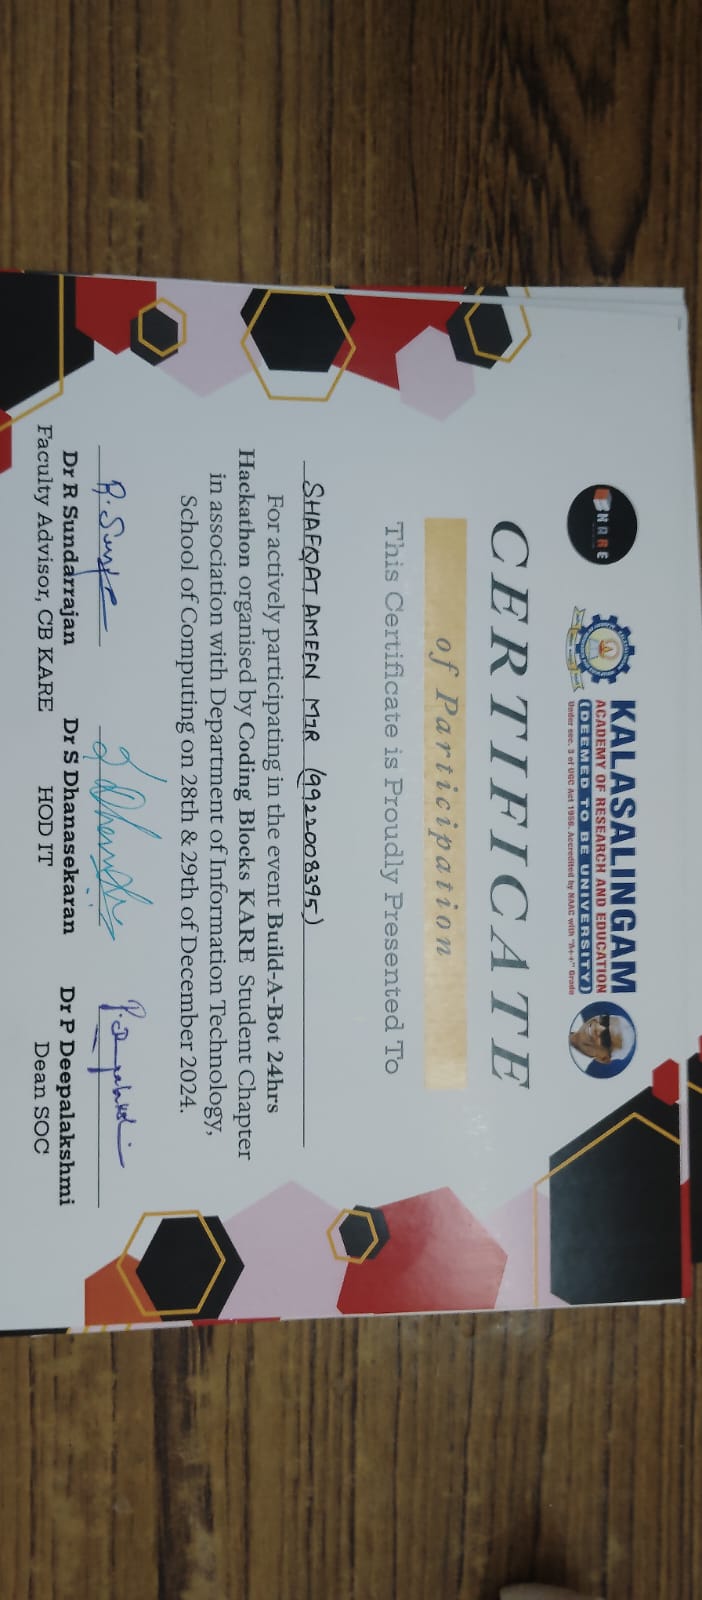 NARE
KALASALINGAM
ACADEMY OF RESEARCH AND EDUCATION
(DEEMED TO BE UNIVERSITY)
Under sec. 3 of UGC Act 1956. Accredited by NAAC with "A++" Grade
CERTIFICATE
of Participation
This Certificate is Proudly Presented To
SHAFQAT AMEEN MIR (9922008395)
For actively participating in the event Build-A-Bot 24hrs
Hackathon organised by Coding Blocks KARE Student Chapter
in association with Department of Information Technology,
School of Computing on 28th & 29th of December 2024.
Dr R Sundarrajan
Faculty Advisor, CB KARE
Dr S Dhanasekaran
HOD IT
Dr P Deepalakshmi
Dean SOC